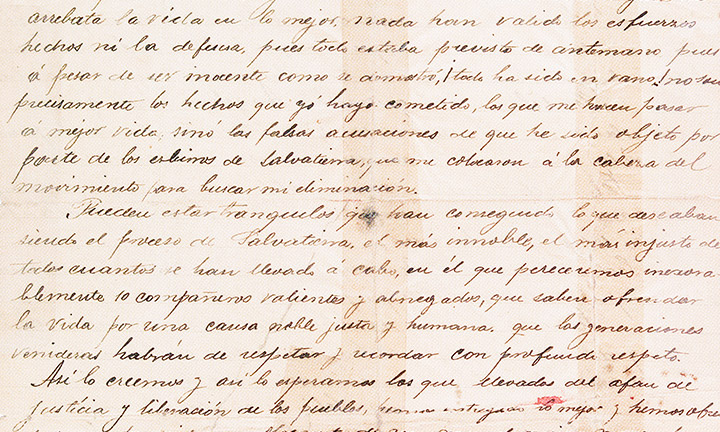 arrebata la vida en lo mejor, nada han valido los esfuerzos
hechos ni la defensa, pues todo estaba previsto de antemano pues
á pesar de ser inocente como se demostró, ¡todo ha sido en vano! no son
precisamente los hechos que yó haya cometido, los que me hacen pasar
á mejor vida, sinó las falsas acusaciones de que he sido objeto por
parte de los esbirros de Salvatierra, que me colocaron á la cabeza del
movimiento para buscar mi eliminación.
Pueden estar tranquilos, que han conseguido lo que deseaban
siendo el proceso de Salvatierra, el más innoble, el más injusto de
todos cuantos se han llevado á cabo, en él que pereceremos inexora-
blemente 10 compañeros valientes y abnegados, que saben ofrendar
la vida por una causa noble justa y humana. que las generaciones
venideras habrán de respetar y recordar con profundo respeto.
Así lo creemos y así lo esperamos los que llevados del afan de
justicia y liberación de los pueblos, hemos entregado lo mejor y hemos